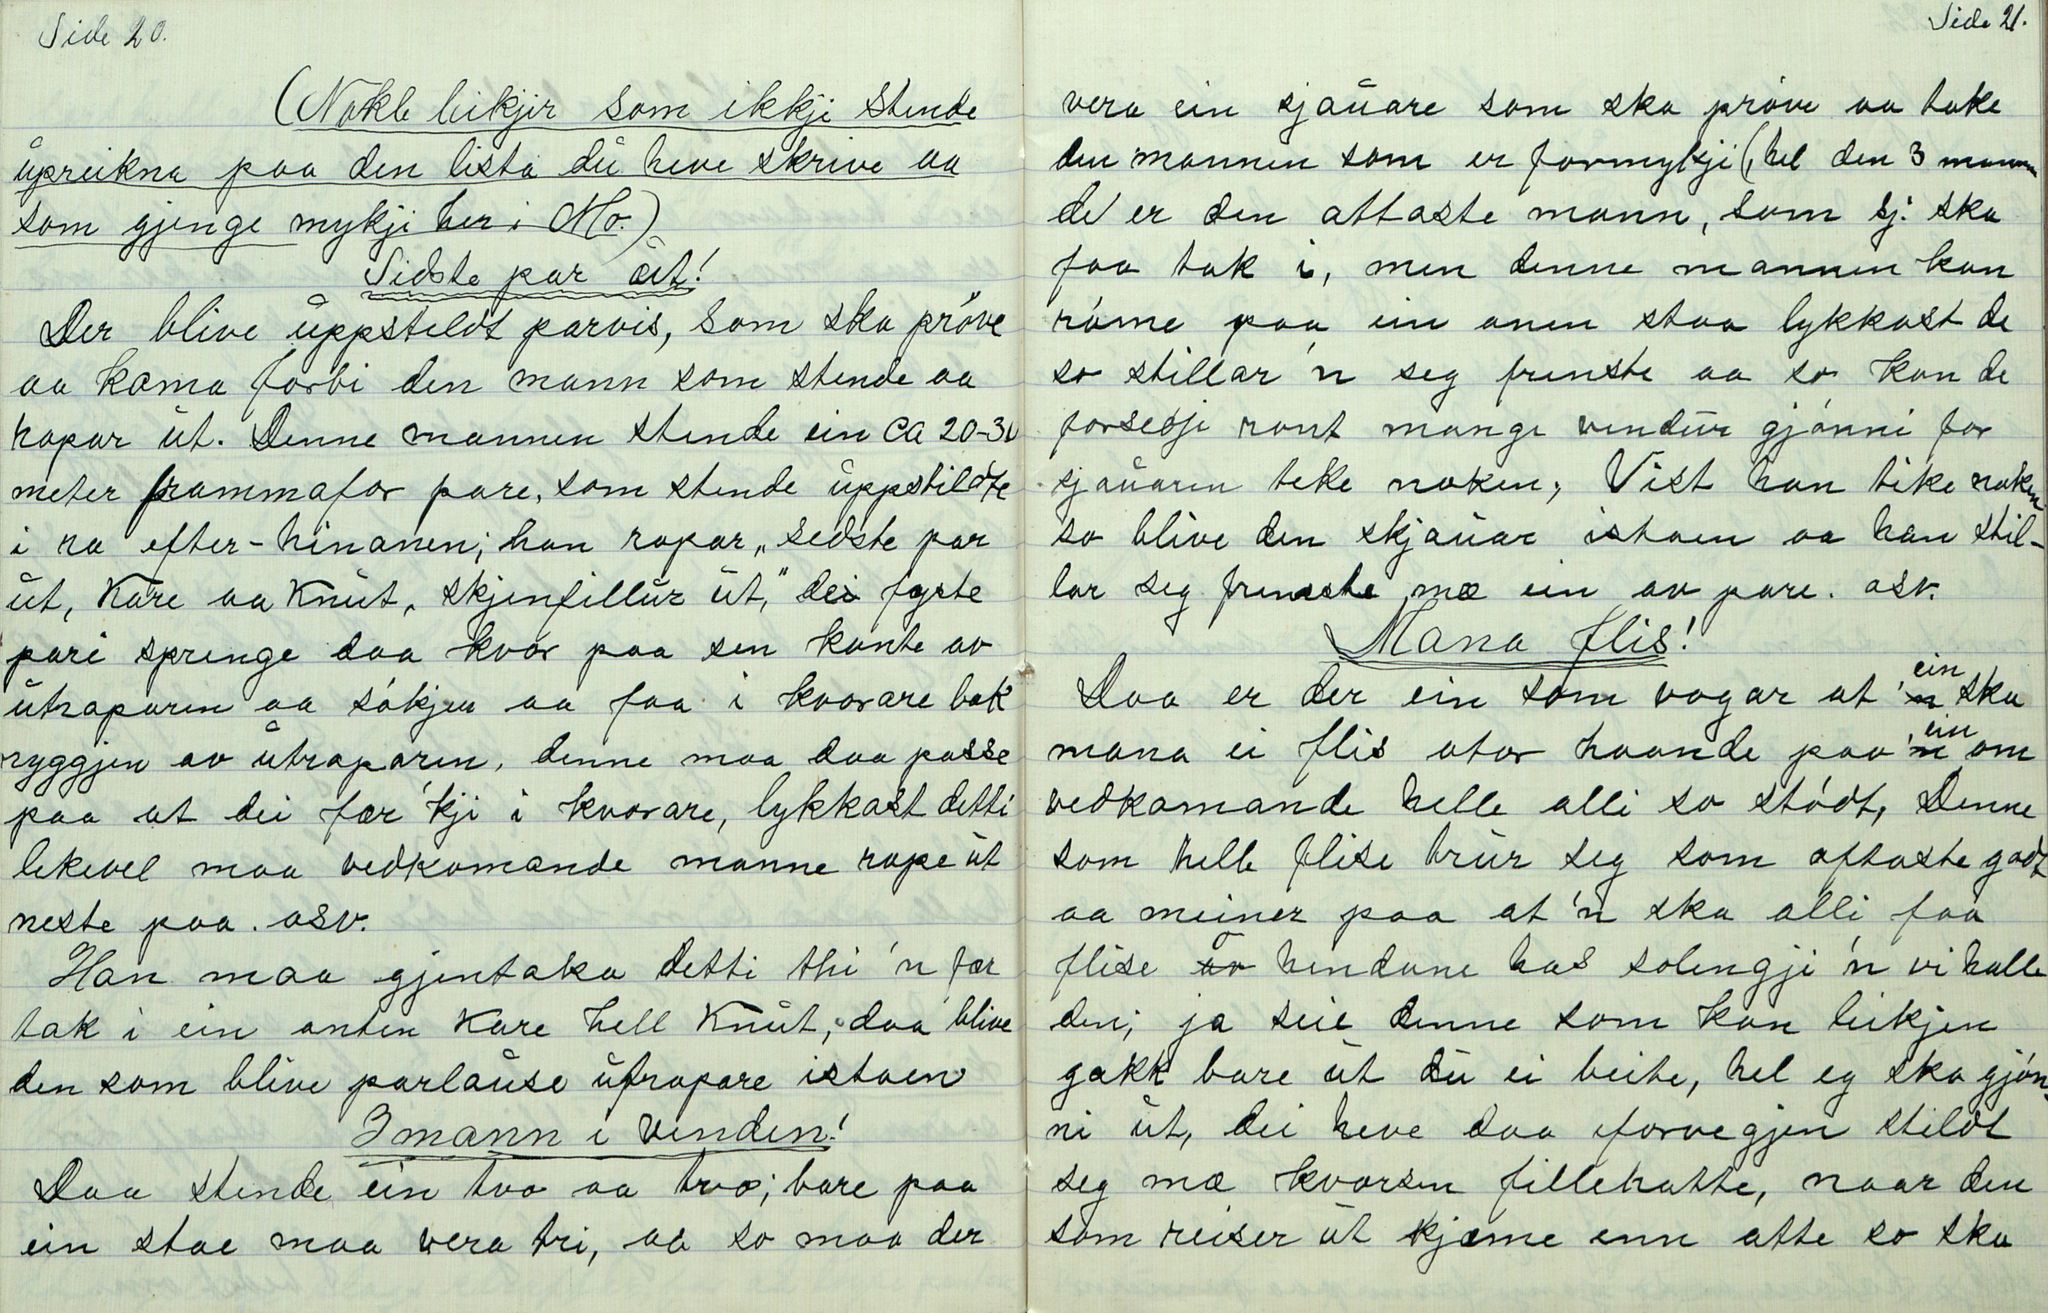 Side 20.
(Nokle leikjir som ikkji stende
ùpreikna paa den lista dù heve skrive aa
som gjenge mykji her i Mo.)
Sidste par ùt!
Der blive ùppstildt parvis, som ska prôve
aa koma forbi den mann som stende aa
ropar ùt. Denne mannen stende ein ca 20-30
meter frammafor pare, som stende ùppstildte
i ra efter-hinanen; han ropar „sedste par
ùt, Kare aa Knùt, skjenfillùr ùt," dei fyste
pari sprenge daa kvor paa sen kante av
ùtroparen aa sókjer aa faa i kvorare bak
ryggjen av ùtroparen, denne maa daa passe
paa at dei fær 'kji i kvorare, lykkast detti
likevel maa vedkomande manne rope ùt
neste paa. osv.
Han maa gjentaka detti thi 'n fær
tak i ein anten Kare hell Knùt, daa blive
den som blive parlaùse ùtropare istaen
3 mann i vinden!
Daa stende ein tvo aa tvo; bare paa
ein stae maa vera tri, aa so maa der
Side 21.
vera ein sjaùare som ska próve aa take
den mannen som er formykji (, hel den 3 mann
de er den attaste mann, som sj. ska
faa tak i, men denne mannen kan
róme paa ein anen staa lykkast de
so stillar 'n seg frenste aa so kan de
forsegje rant mange vendùr gjónni for
sjaùaren teke noken, Vist han tike noken
so blive den skjaùar istaen aa han stil-
lar seg frenste mæ ein av pare. osv.
Mana flis!
Daa er der ein som vagar at ein ska
mana ei flis utor haande paa ein om
vedkomande helle alli so stódt, Denne
som helle flise trùr seg som oftaste godt
aa meiner paa at 'n ska alli faa
flise or hendane has solengji 'n vi halle
den; ja seie denne som kan leikjen
gakk bare ùt dù ei beite, hel eg ska gjón-
ni ùt, dei heve daa forvegjen stildt
seg mæ kvorsen fillehatte, naar den
som reiser ùt kjæme enn atte so ska